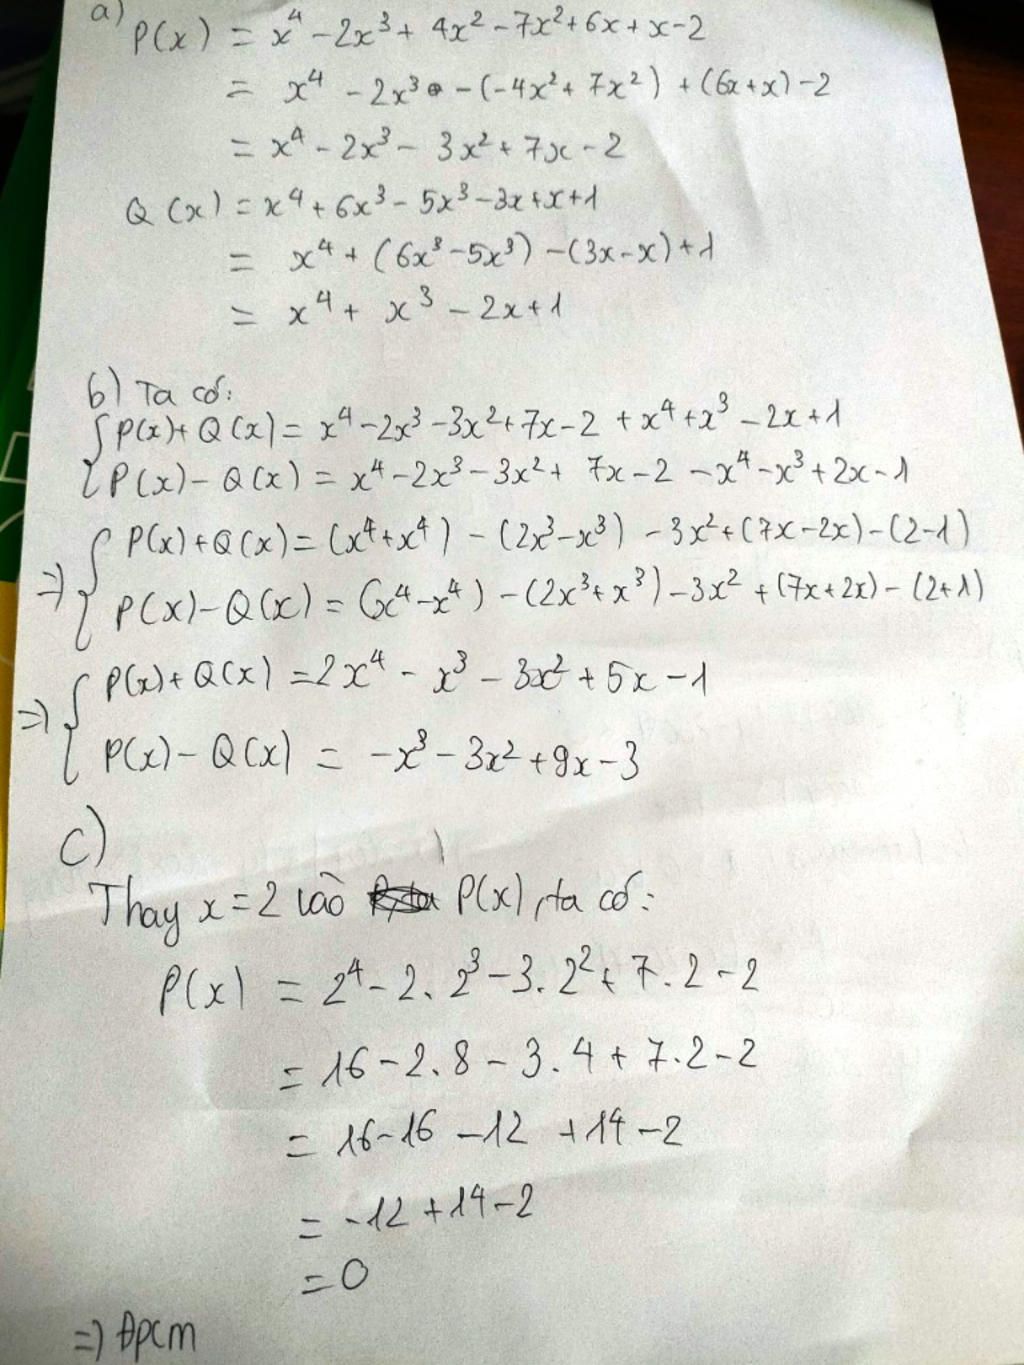 a) P(x) = x⁴ - 2x³ + 4x² - 7x² + 6x + x - 2
= x⁴ - 2x³ - (-4x² + 7x²) + (6x + x) - 2
= x⁴ - 2x³ - 3x² + 7x - 2
Q(x) = x⁴ + 6x³ - 5x³ - 3x + x + 1
= x⁴ + (6x³ - 5x³) - (3x - x) + 1
= x⁴ + x³ - 2x + 1
b) Ta có:
{ P(x) + Q(x) = x⁴ - 2x³ - 3x² + 7x - 2 + x⁴ + x³ - 2x + 1
P(x) - Q(x) = x⁴ - 2x³ - 3x² + 7x - 2 - x⁴ - x³ + 2x - 1
=> { P(x) + Q(x) = (x⁴ + x⁴) - (2x³ - x³) - 3x² + (7x - 2x) - (2 - 1)
P(x) - Q(x) = (x⁴ - x⁴) - (2x³ + x³) - 3x² + (7x + 2x) - (2 + 1)
=> { P(x) + Q(x) = 2x⁴ - x³ - 3x² + 5x - 1
P(x) - Q(x) = -x³ - 3x² + 9x - 3
c)
Thay x = 2 vào P(x), ta có:
P(x) = 2⁴ - 2. 2³ - 3. 2² + 7. 2 - 2
= 16 - 2. 8 - 3. 4 + 7. 2 - 2
= 16 - 16 - 12 + 14 - 2
= -12 + 14 - 2
= 0
=> Đpcm